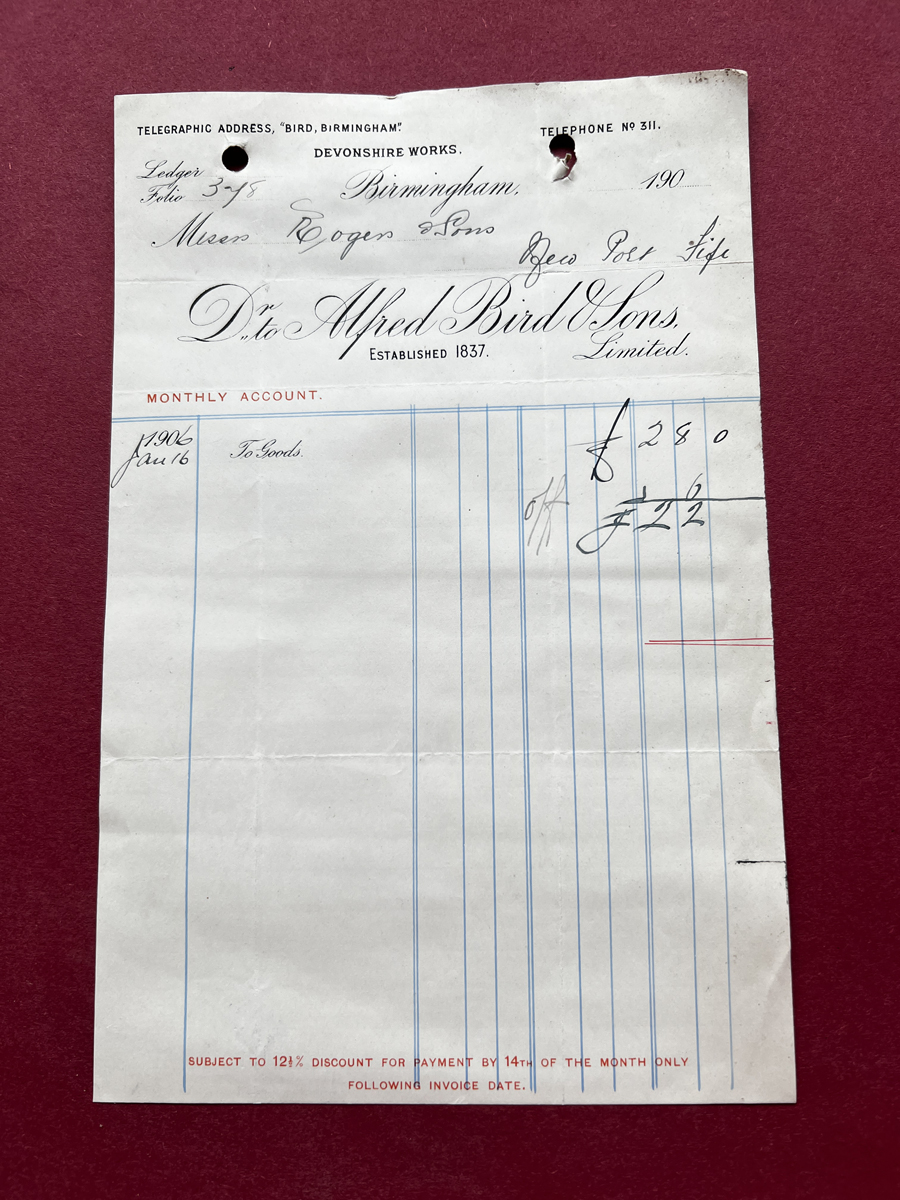 TELEGRAPHIC ADDRESS, "BIRD, BIRMINGHAM".
TELEPHONE No 311.
DEVONSHIRE WORKS.
Ledger
Folio 378
Birmingham, 190
Messrs Rogers & Sons
New Port Fife
Dr. to Alfred Bird & Sons,
Limited.
ESTABLISHED 1837.
MONTHLY ACCOUNT.
1906
Jan 16 To Goods. £ 2 8 0
off 6
£ 2 2
SUBJECT TO 12½% DISCOUNT FOR PAYMENT BY 14TH OF THE MONTH ONLY
FOLLOWING INVOICE DATE.